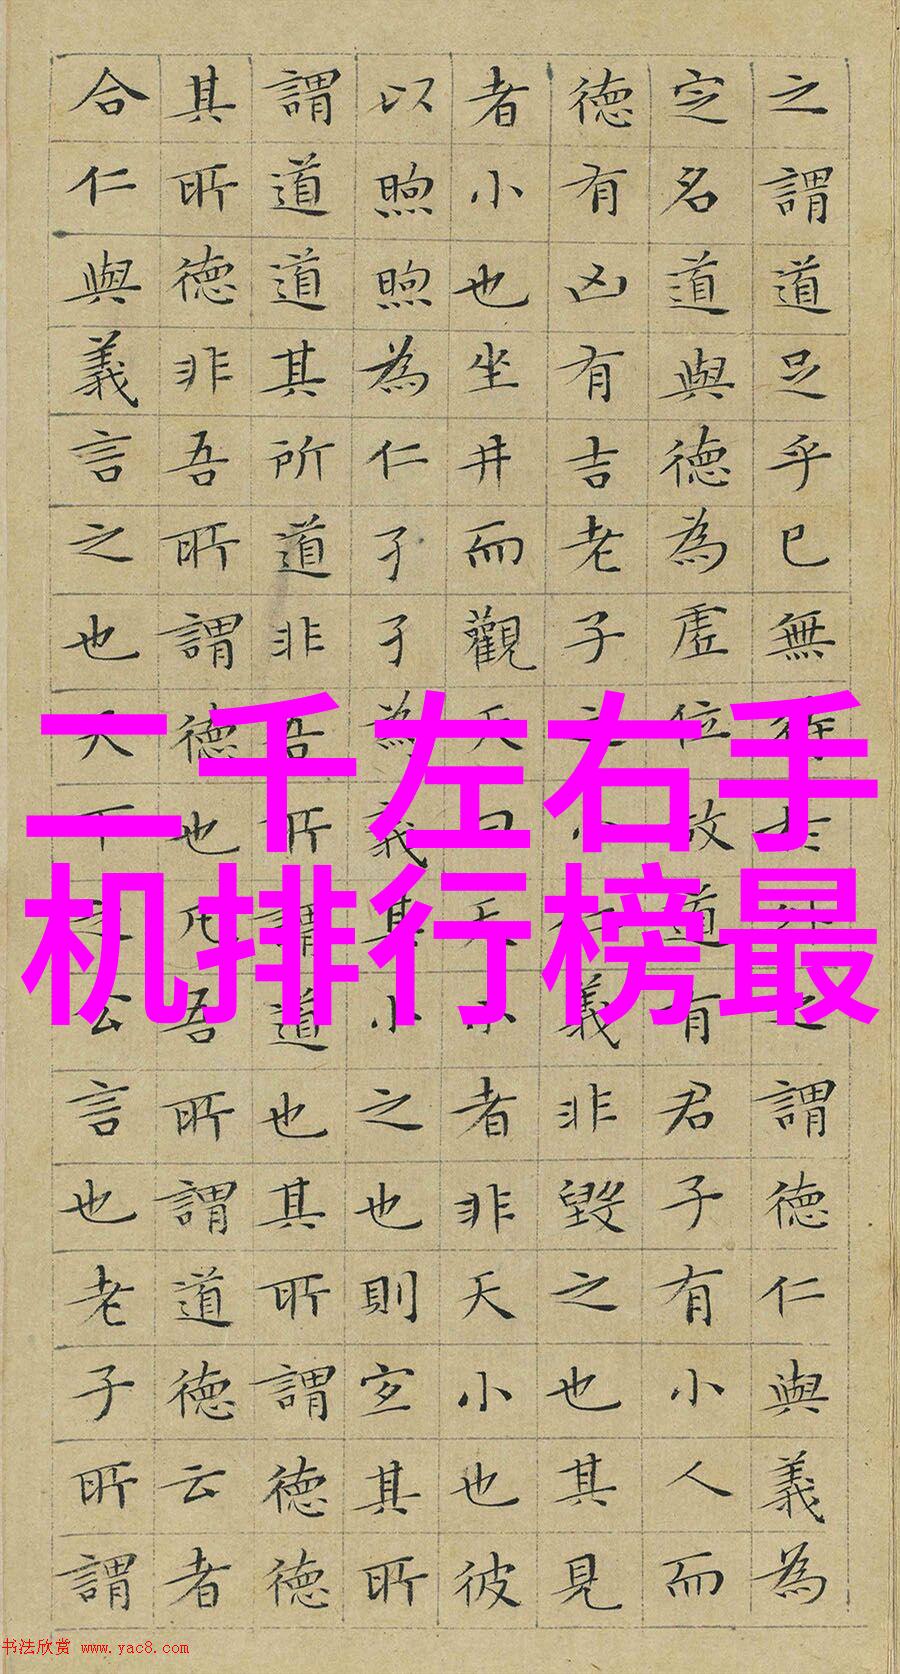 之謂道足乎已無待於外之謂德仁與義為
定名道與德為虛位故道有君子有小人而
德有凶有吉老子之小仁義非毀之也其見
者小也坐井而觀天曰天小者非天小也彼
以煦煦為仁孑孑為義其小之也則宜其所
謂道道其所道非吾所謂道也其所謂德德
其所德非吾所謂德也凡吾所謂道德云者
合仁與義言之也天下之公言也老子所謂
二千左右手
机排行榜最
书法欣赏 www.yac8.com